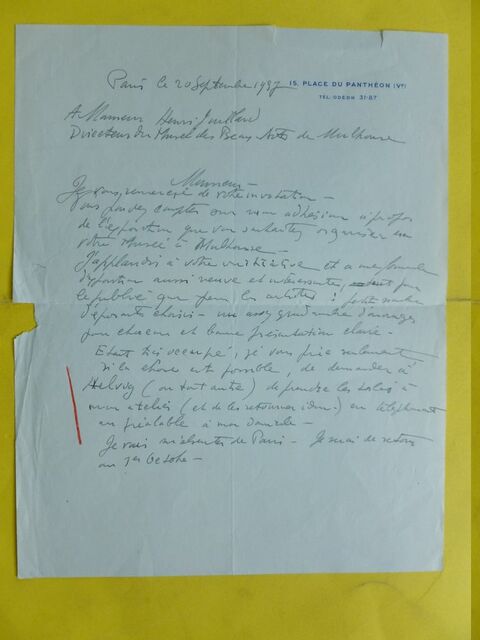 15, PLACE DU PANTHÉON (Ve)
TÉL. ODÉON 31-87
Paris le 20 Septembre 1937
A Monsieur Henri
Directeur du Musée des Beaux Arts de Mulhouse
Monsieur —
Je vous remercie de votre invitation —
Vous pouvez compter sur mon adhésion à propos
de l'exposition que vous souhaitez organiser en
votre Musée à Mulhouse —
J'applaudis à votre initiative et à une formule
d'exposition aussi neuve et intéressante, pour
le public que pour les artistes :
d'exposants choisis — un assez grand nombre d'ouvrages
pour chacun et bonne présentation claire —
Etant très occupé, je vous prie seulement
si la chose est possible, de demander à
(ou tout autre) de prendre les toiles à
mon atelier (et de les retourner idem) en téléphonant
au préalable à mon domicile —
Je vais m'absenter de Paris — Je serai de retour
au 1er Octobre —